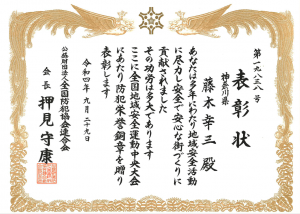 第一九八三八号
表彰状
神奈川県
藤木幸三殿
あなたは多年にわたり地域安全活動
に尽力し安全で安心な街づくりに
貢献されました
その功労は多大であります
ここに全国地域安全運動中央大会
にあたり防犯栄誉銅章を贈り
表彰します
令和四年九月二十九日
公益財団法人全国防犯協会連合会
会長 押見守康